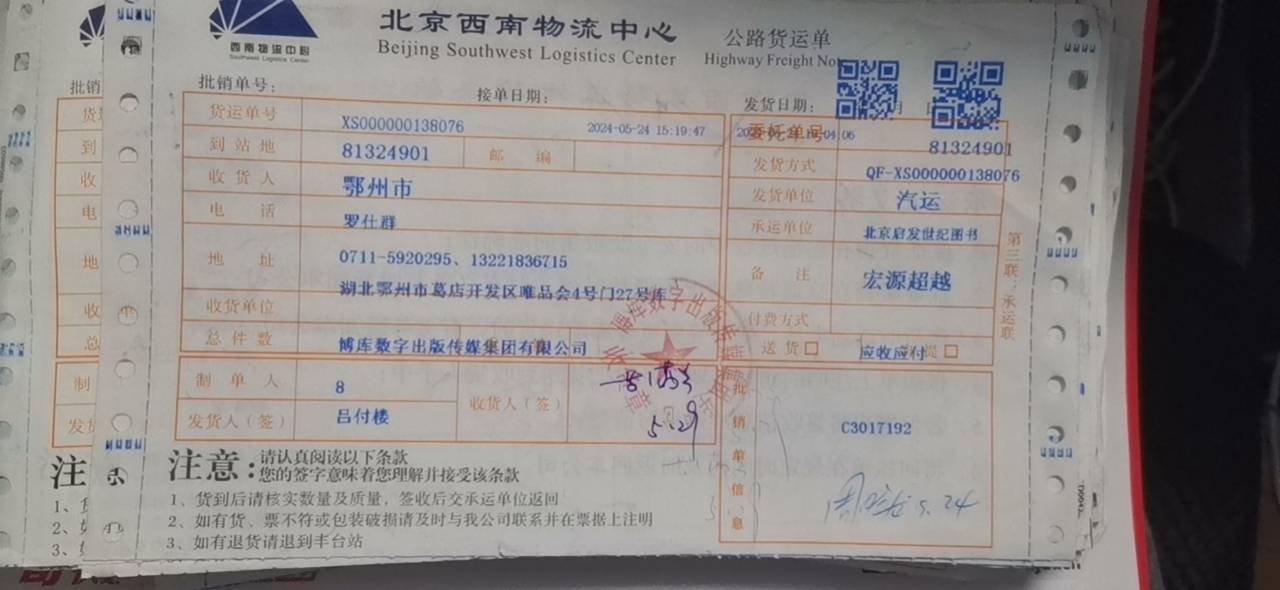 西南物流中心
Southwest Logistics Center
北京西南物流中心
Beijing Southwest Logistics Center
公路货运单
Highway Freight Not
批销单号：
接单日期：
发货日期：
货运单号
XS000000138076
2024-05-24 15:19:47
委托单号
81324901
到站地
81324901
邮编
发货方式
QF-XS000000138076
收货人
鄂州市
发货单位
汽运
电话
罗仕群
承运单位
北京启发世纪图书
地址
0711-5920295、13221836715
湖北鄂州市葛店开发区唯品会4号门27号库
备注
宏源超越
收货单位
付费方式
总件数
博库数字出版传媒集团有限公司
送货□
应收应付
提□
制单人
8
收货人（签）
5.29
发货人（签）
吕付楼
批销单信息
C3017192
5.24
第三联：承运联
注意：
请认真阅读以下条款
您的签字意味着您理解并接受该条款
1、货到后请核实数量及质量，签收后交承运单位返回
2、如有货、票不符或包装破损请及时与我公司联系并在票据上注明
3、如有退货请退到丰台站